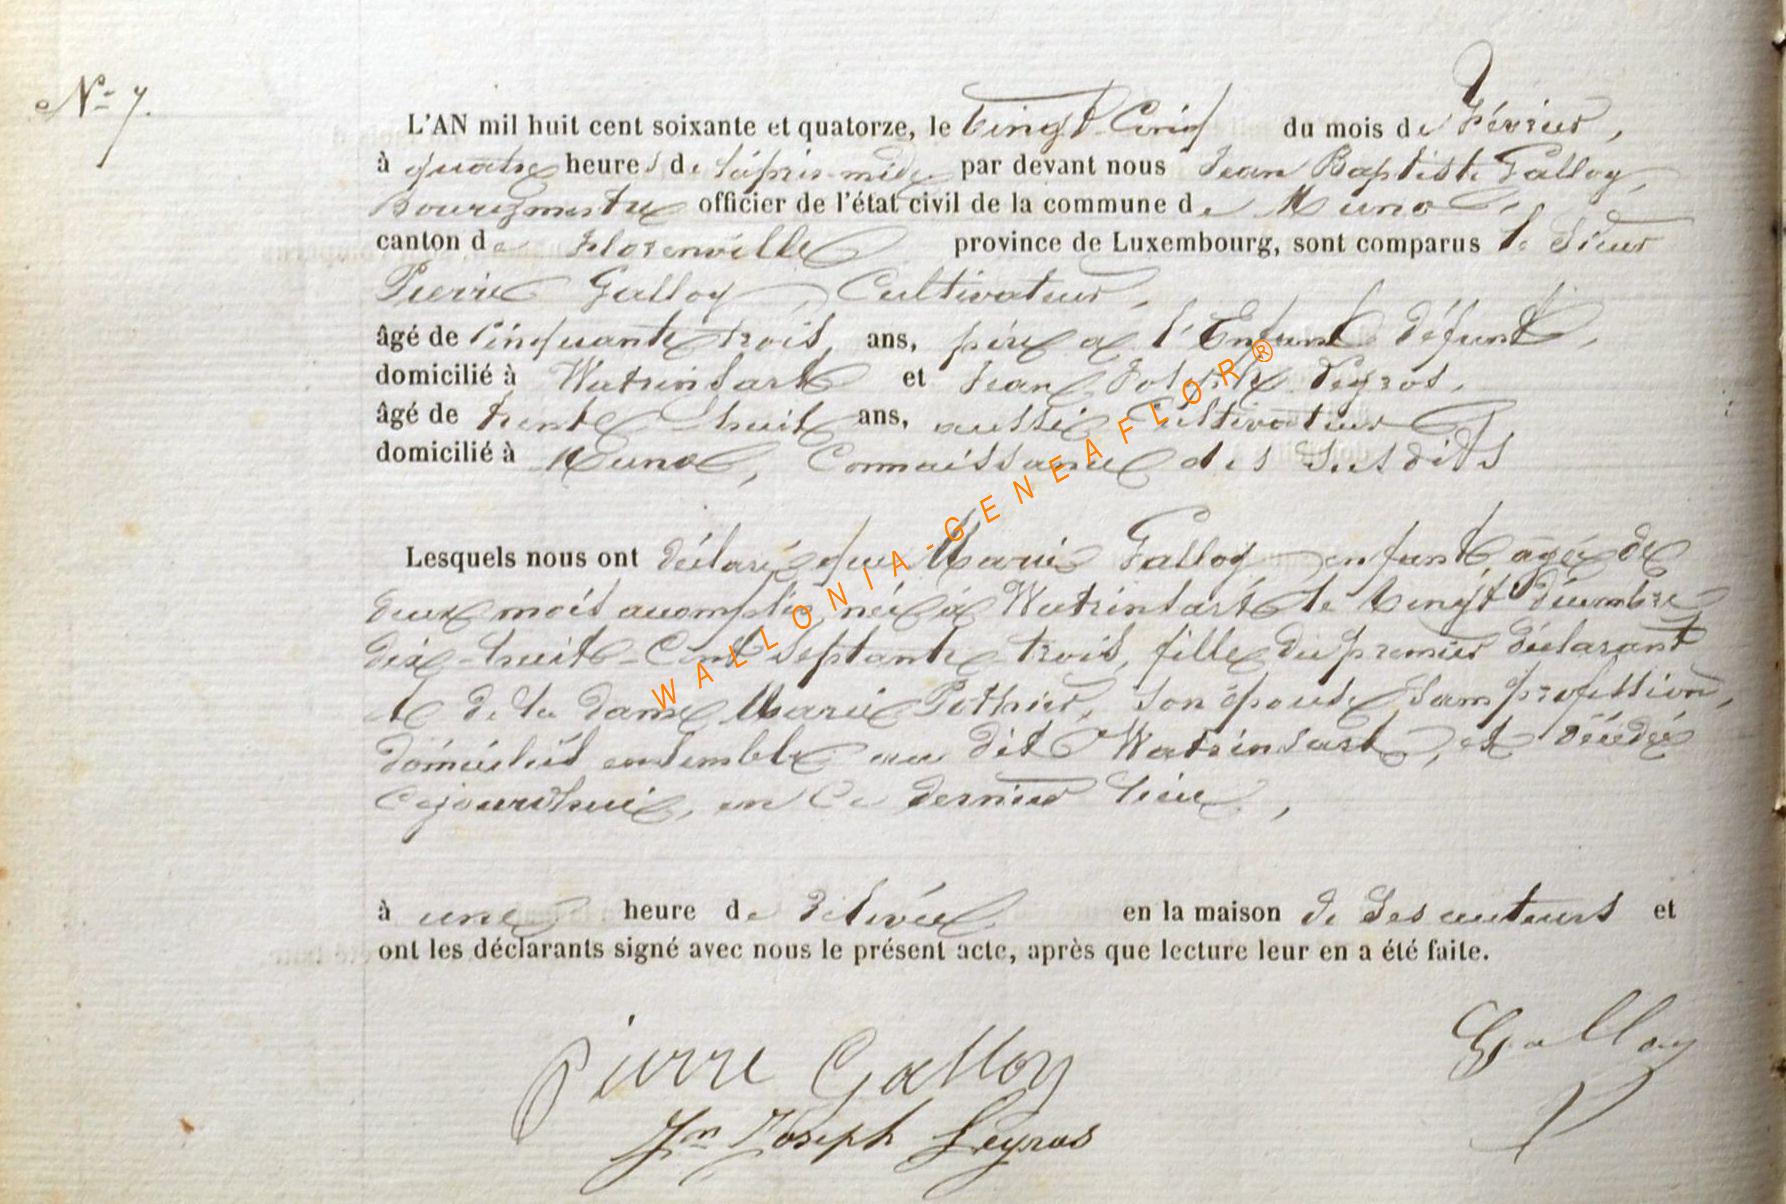 N° 7.
L'AN mil huit cent soixante et quatorze, le vingt-Cinq du mois de Février,
à quatre heures de l'après-midi par devant nous Jean Baptiste Galloy,
Bourgmestre officier de l'état civil de la commune de Muno,
canton de Florenville province de Luxembourg, sont comparus le Sieur
Pierre Galloy, Cultivateur,
âgé de Cinquante trois ans, père à l'Enfant défunt,
domicilié à Watrinsart et Jean Joseph
âgé de trente huit ans, aussi Cultivateur
domicilié à Muno, Connaissance des susdits
Lesquels nous ont déclaré que Marie Galloy, enfant, agée de
deux mois accomplis, née à Watrinsart le vingt décembre
dix-huit-Cent septante trois, fille du premier déclarant
et de la dame Marie Pothier, son épouse, sans profession,
domiciliés ensemble au dit Watrinsart, et décédée
Cejourd'hui, en Ce dernier lieu,
à une heure de relevée en la maison de ses auteurs et
ont les déclarants signé avec nous le présent acte, après que lecture leur en a été faite.
Pierre Galloy
Galloy
Jn Joseph
WALLONIA-GENEAFLOR®